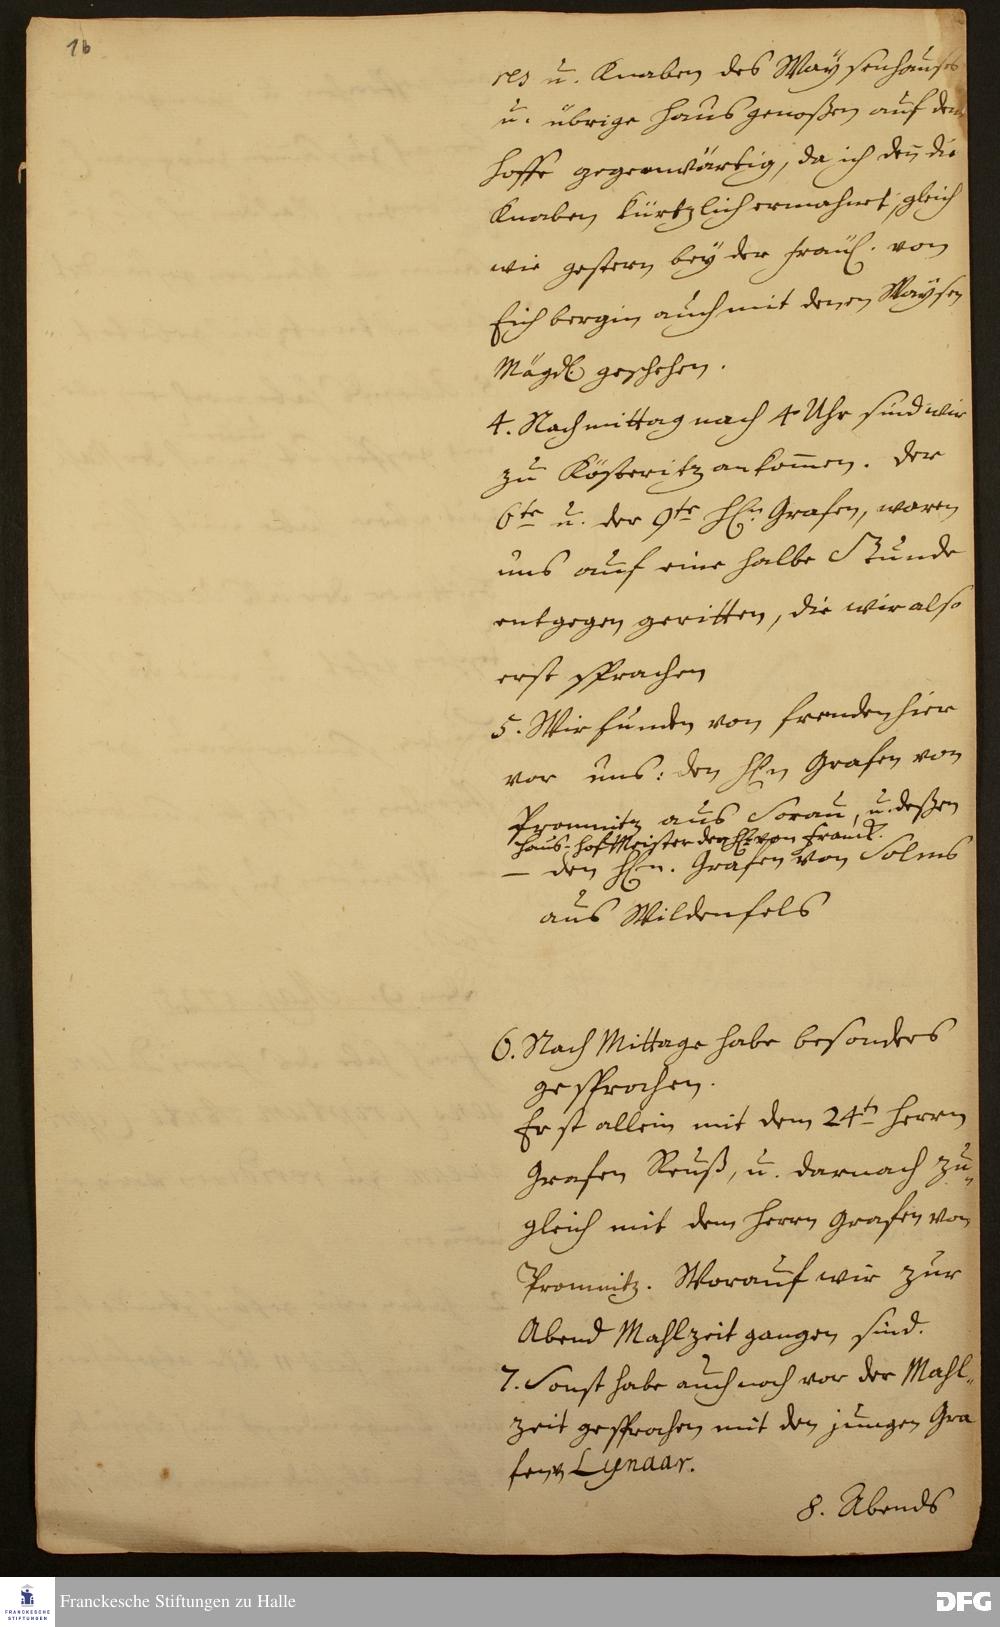 16
res u. Knaben des Waysenhauses
u. übrige Hausgenoßen auf dem
Hoffe gegenwärtig, da ich den̄ die
Knaben kürtzlich ermahnet, gleich
wie gestern bey der Fräul. von
Eichbergin auch mit denen Waysen
Mägdl. geschehen.
4. Nachmittag nach 4 Uhr sind wir
zu Kösteritz ankom̄en. Der
6te u. der 9te HEn. Grafen, waren
uns auff eine halbe Stunde
entgegen geritten, die wir also
erst sprachen
5. Wir funden von fremden hier
vor uns: den HEn Grafen von
Promnitz aus Sorau, u. deßen
Haus-Hof Meister den HE. von Franck.
— den HEn. Grafen von Solms
aus Wildenfels
6. Nach Mittage habe besonders
gesprochen.
Erst allein mit dem 24tn Herrn
Grafen Reuß, u. darnach zu-
gleich mit dem Herrn Grafen von
Promnitz. Worauf wir zur
Abend Mahlzeit gangen sind.
7. Sonst habe auch noch vor der Mahl-
zeit gesprochen mit den jungen Gra
fen Lynaar.
8. Abends
FRANCKESCHE STIFTUNGEN
Franckesche Stiftungen zu Halle
DFG